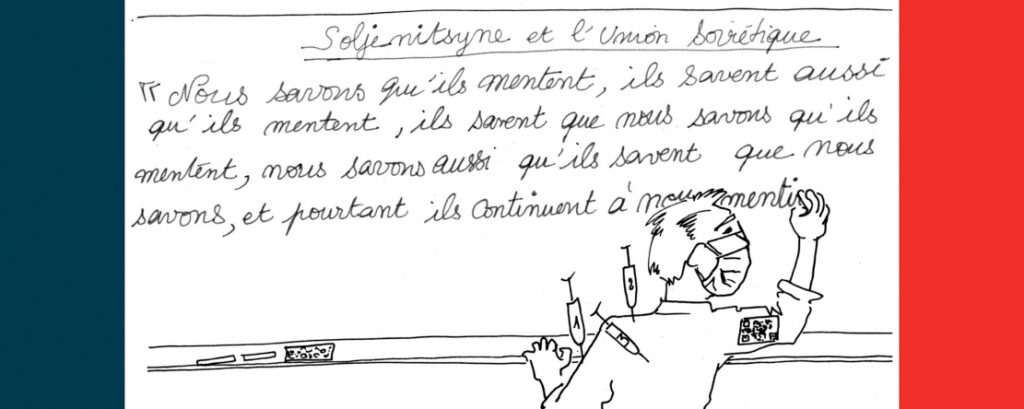 Soljenitsyne et l'Union Soviétique
" Nous savons qu'ils mentent, ils savent aussi
qu'ils mentent, ils savent que nous savons qu'ils
mentent, nous savons aussi qu'ils savent que nous
savons, et pourtant ils continuent à nous mentir
2
1
3